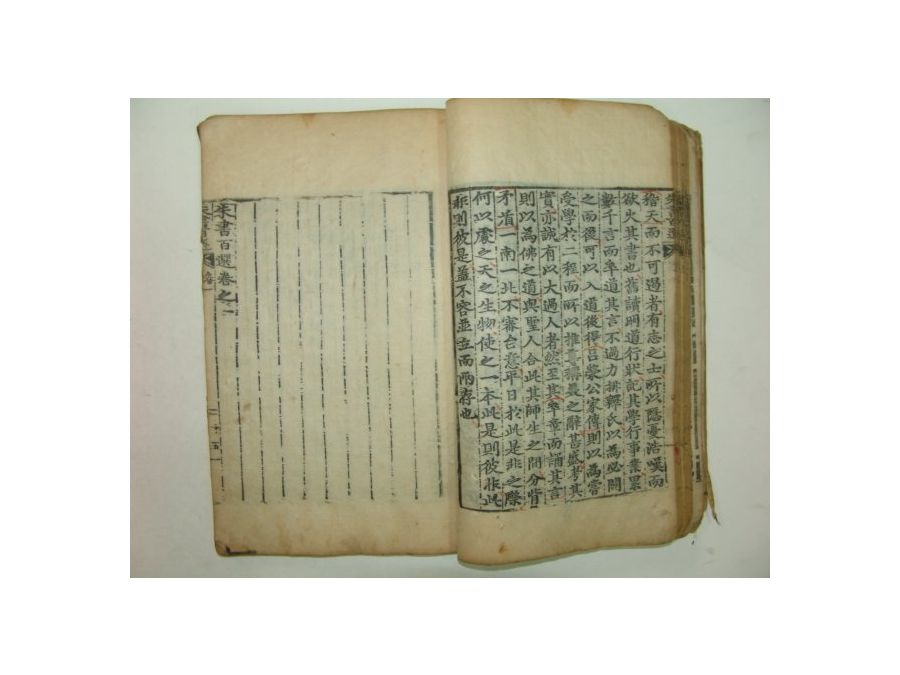 稽天而不可遏者有志之士所以隱憂浩嘆而
欲火其書也舊讀明道行狀記其學行事業累
數千言而卒道其言不過力排釋氏以為必闢
之而後可以入道後得呂榮公家傳則以為嘗
受學於二程而所以推尊稱美之辭甚盛考其
實亦誠有以大過人者然至其卒章而誦其言
則以為佛之道與聖人合此其師生之間分背
矛盾一南一北不審台意平日於此是非之際
何以處之天之生物使之一本此是則彼非此
非則彼是蓋不容並立而兩存也
朱書百選卷之一